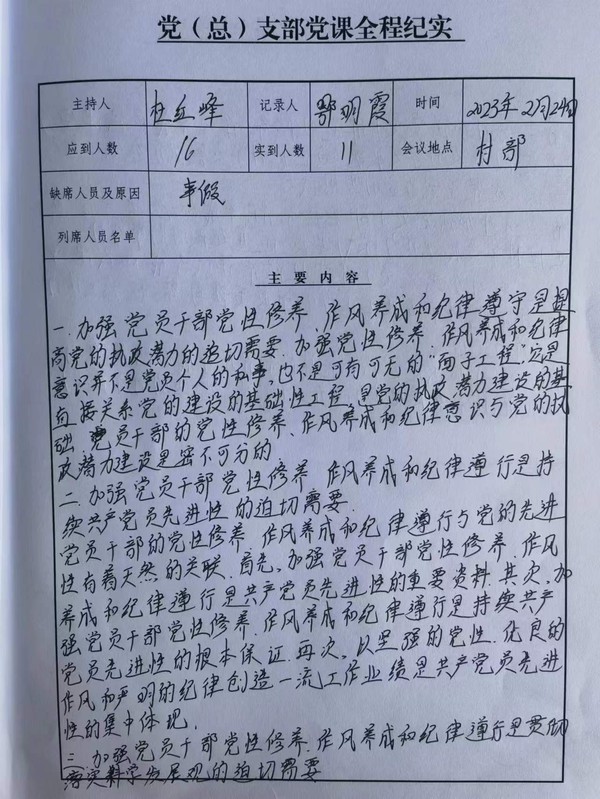 党（总）支部党课全程纪实
主持人 杜红峰 记录人 鄂明霞 时间 2023年2月24日
应到人数 16 实到人数 11 会议地点 村部
缺席人员及原因 事假
列席人员名单
主要内容
一.加强党员干部党性修养、作风养成和纪律遵守是提
高党的执政潜力的迫切需要.加强党性修养、作风养成和纪律
意识并不是党员个人的私事,也不是可有可无的“面子工程”它是
直接关系党的建设的基础性工程、是党的执政潜力建设的基
础、党员干部的党性修养、作风养成和纪律意识与党的执
政潜力建设是密不可分的
二.加强党员干部党性修养、作风养成和纪律遵行是持
续共产党员先进性的迫切需要.
党员干部的党性修养、作风养成和纪律遵行与党的先进
性有着天然的关联.首先,加强党员干部党性修养、作风
养成和纪律遵行是共产党员先进性的重要资料.其次,加
强党员干部党性修养、作风养成和纪律遵行是持续共产
党员先进性的根本保证.再次,以坚强的党性、优良的
作风和严明的纪律创造一流工作业绩是共产党员先进
性的集中体现.
三.加强党员干部党性修养、作风养成和纪律遵行是贯彻
落实科学发展观的迫切需要